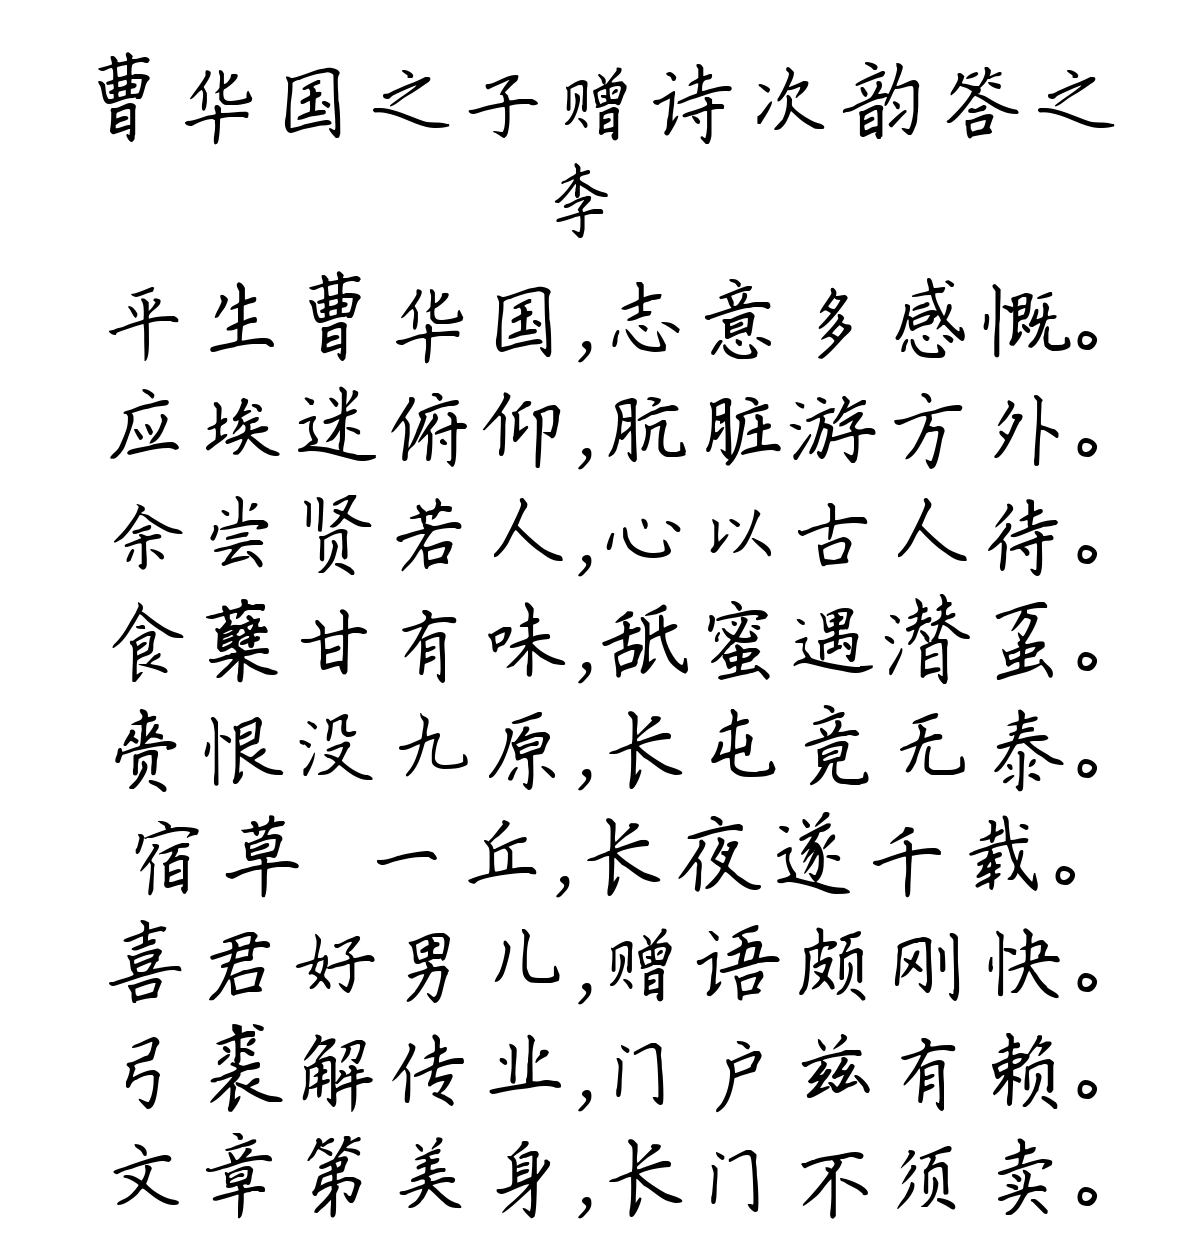 曹华国之子赠诗次韵答之
李
平生曹华国,志意多感慨。
应埃迷俯仰,肮脏游方外。
余尝贤若人,心以古人待。
食蘖甘有味,舐蜜遇潜虿。
赍恨没九原,长屯竟无泰。
宿草 一丘,长夜遂千载。
喜君好男儿,赠语颇刚快。
弓裘解传业,门户兹有赖。
文章第美身,长门不须卖。